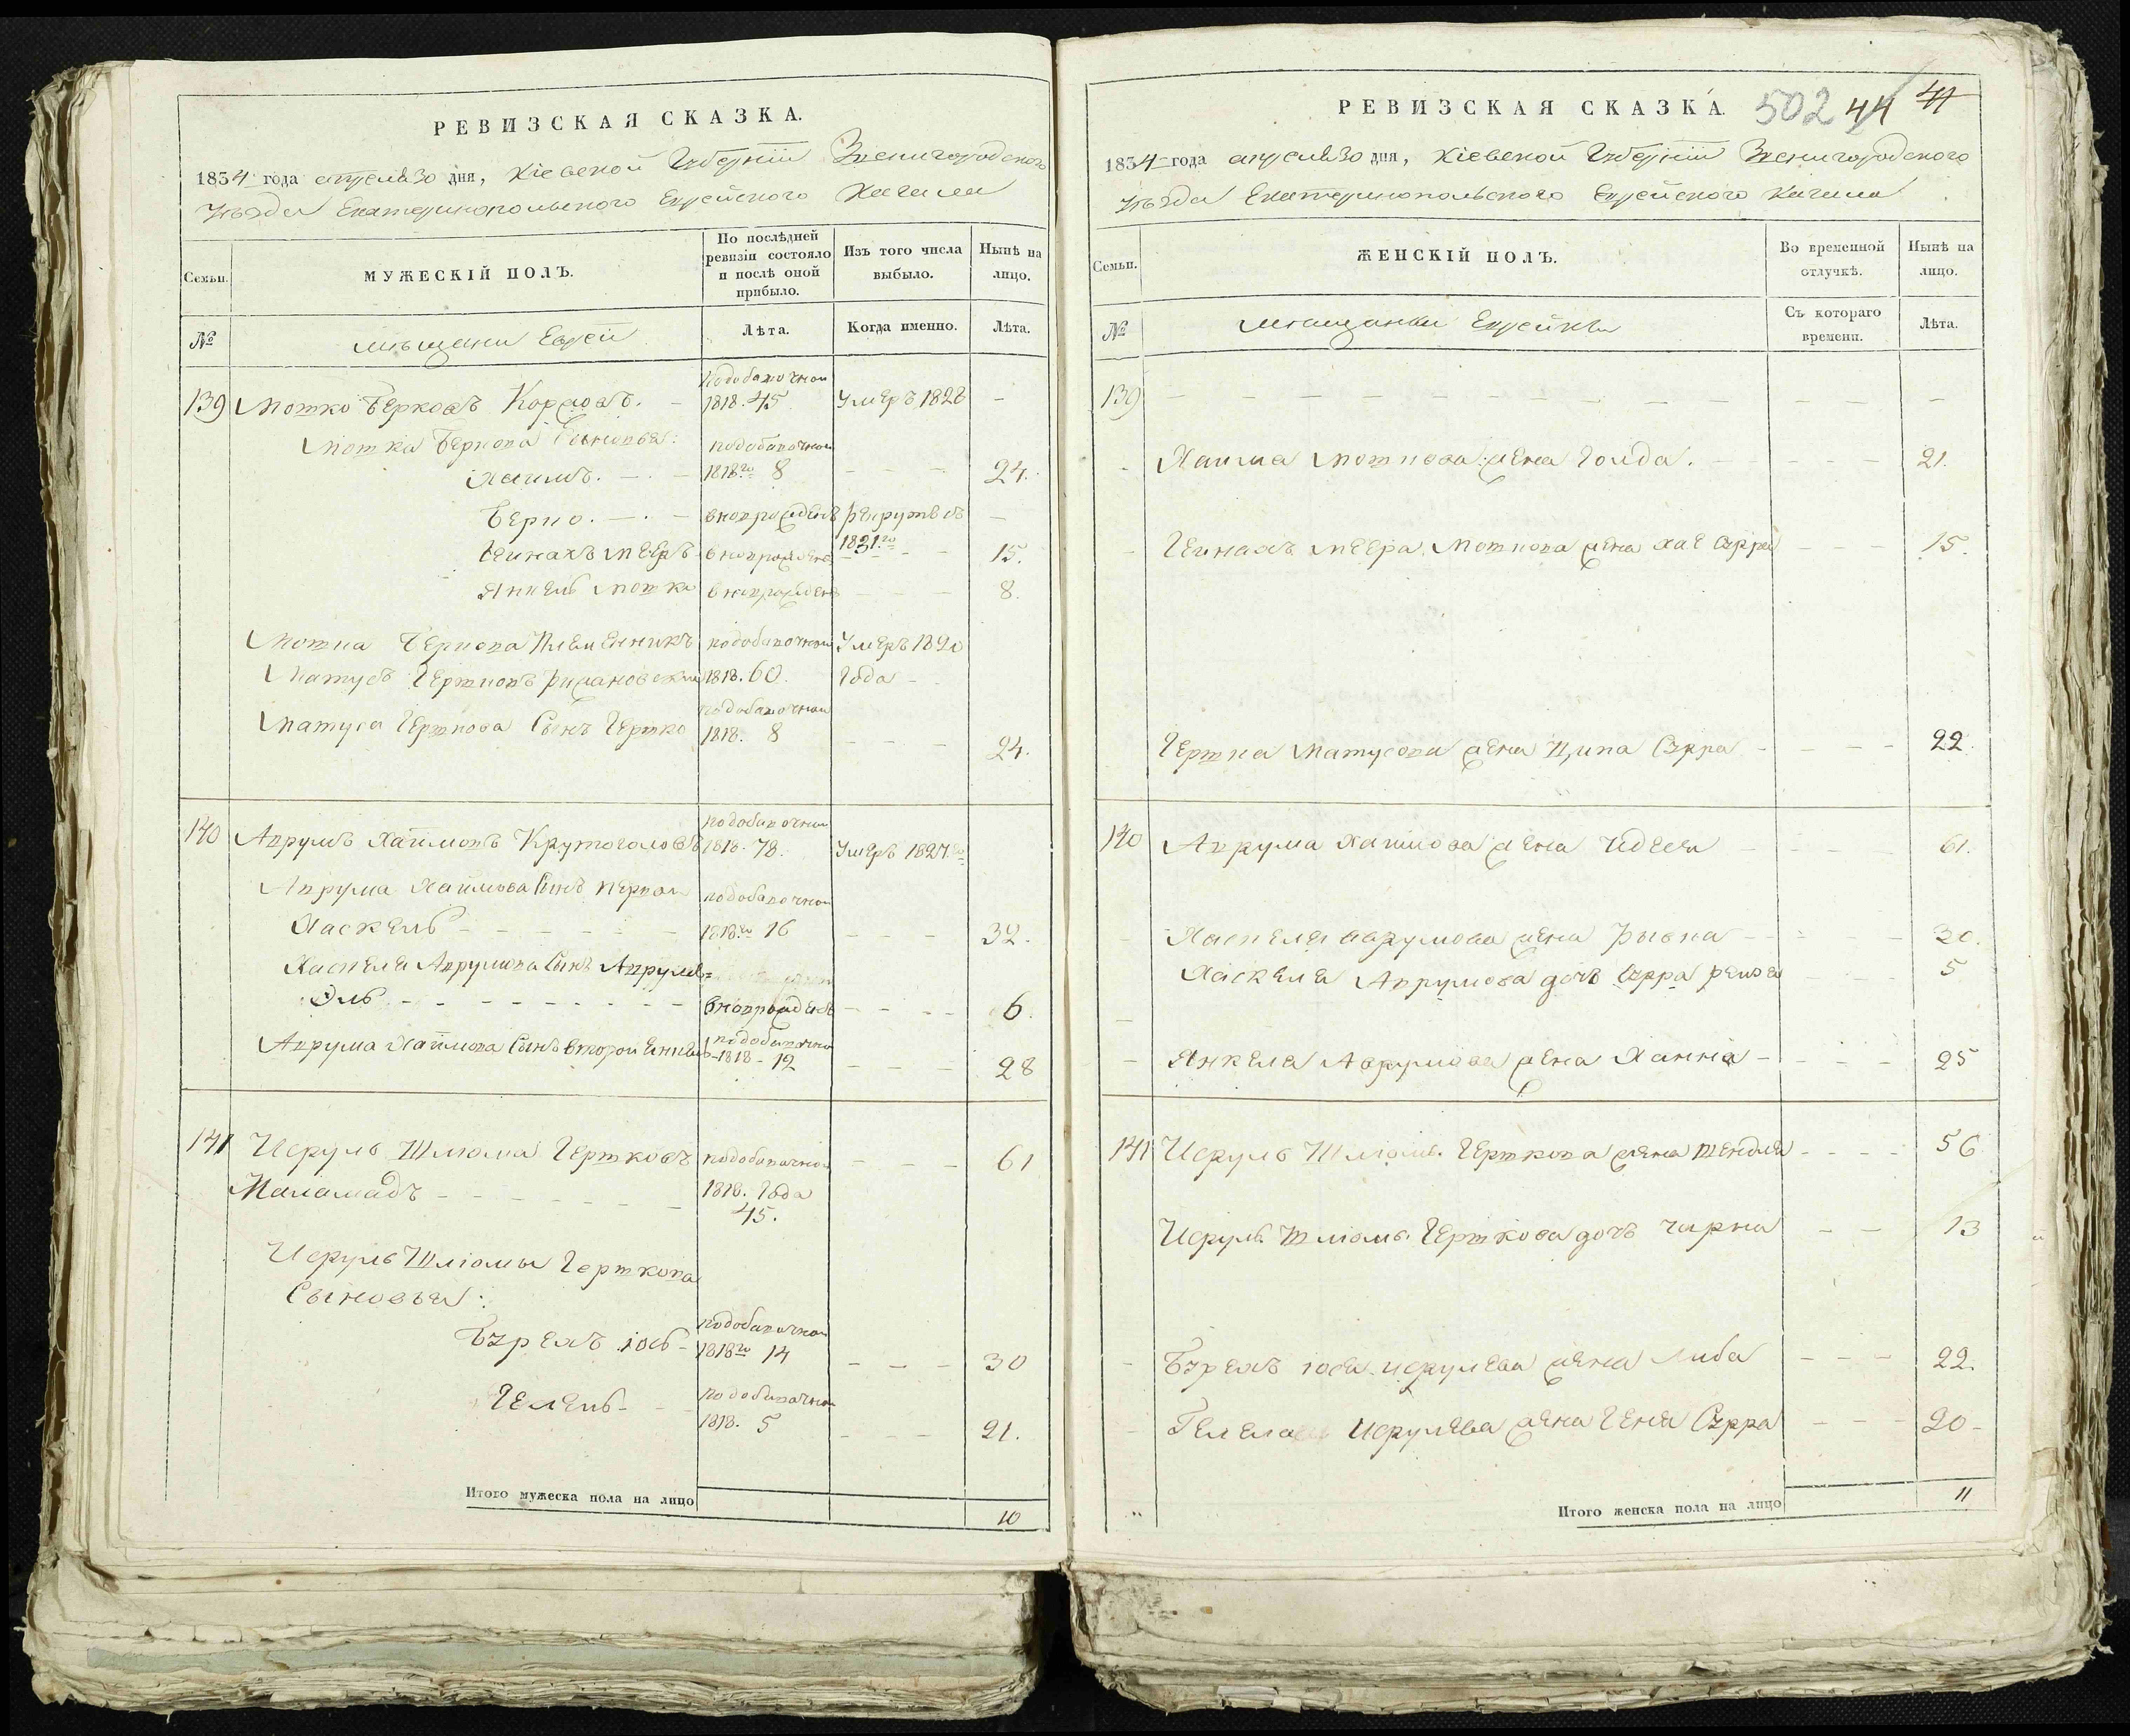 РЕВИЗСКАЯ СКАЗКА.
1834 года апреля 30 дня, Кіевской Губерніи Звенигородского
Уѣзда Екатеринопольского Еврейского Кагала
Семьи.
МУЖЕСКІЙ ПОЛЪ.
По послѣдней ревизіи состояло и послѣ оной прибыло.
Изъ того числа выбыло.
Нынѣ на лицо.
№
мѣщани Евреи
Лѣта.
Когда именно.
Лѣта.
подобавочной
139 Мотко Берковъ 1818. 45 Умеръ 1828 -
Мотка Беркова Сыновья: подобавочной
Хаимъ. 1818го 8 - - - 24.
Берко. - вновьрожденъ рекрутв въ -
Мееръ вновьрожденъ 1831го - - 15.
Янкель Мотка вновьрожденъ - - - 8.
Мотка Беркова Племенникъ подобавочной Умеръ 1820
Матусъ Гершковъ 1818. 60. Года -
подобавочной
Матуса Гершкова Сынъ Гершко 1818. 8 - - - 24.
подобавочной
140 Аврумъ Хаимовъ Крутоголовъ 1818. 78. Умеръ 1827го
Аврума Хаимова Сынъ первой подобавочной
Хаскель - - - - - 1818го 16 - - - 32.
Хаскеля Аврумова Сынъ Аврумъ=
Эль - - - - - - - вновьрожденъ - - - 6.
Аврума Хаимова Сынъ второй Янкель подобавочной
1818 - 12 - - - 28
141 Исруль Шлиома Гершковъ подобавочной - - - 61
Маламадъ - - - - - - 1818. Года
45.
Исруль Шлиомы Гершкова
Сыновья:
подобавочной
Бурехъ Іось - 1818го 14 - - - 30
Гелель - - подобавочной
1818. 5 - - - 21.
Итого мужеска пола на лицо 10
РЕВИЗСКАЯ СКАЗКА. 502 44 41
1834 года апреля 30 дня, Кіевской Губерніи Звенигородского
Уѣзда Екатеринопольского Еврейского Кагала
Семьи.
ЖЕНСКІЙ ПОЛЪ.
Во временной отлучкѣ.
Нынѣ на лицо.
№
мѣщанки Еврейки
Съ котораго времени.
Лѣта.
139 - - - - - - - - - - - - -
- Хаима Моткова жена Голда. - - - - 21.
- Меера Моткова жена Хае Сурра - - - 15.
Гершка Матусова жена Ципа Сурра - - - - 22.
140 Аврума Хаимова жена - - - - 61.
- Хаскеля Аврумова жена Рывка - - - - 30.
Хаскеля Аврумова дочь Сурра Рейза - - - 5
- Янкеля Аврумова жена Ханна - - - - 25
141 Исруль Шлиомы Гершкова жена Шендля - - - - 56
Исруль Шлиомы Гершкова дочь Чарна - - 13
- Бурехъ Іося Исрулева жена Либа - - - 22.
- Гелеля Исрулева жена Геня Сурра - - 20-
Итого женска пола на лицо 11